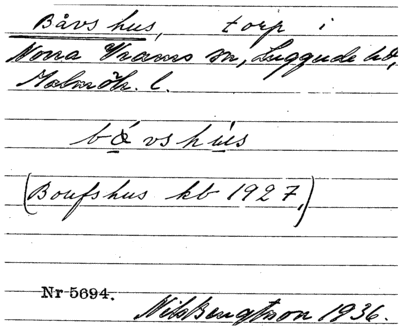 Båvs hus, torp i
Norra Vrams sn, Luggude hd,
Malmöh. l.
bå̱vs hu̱s
(Boufshus kb 1927,)
Nr 5694.
Nils Bengtsson 1936.